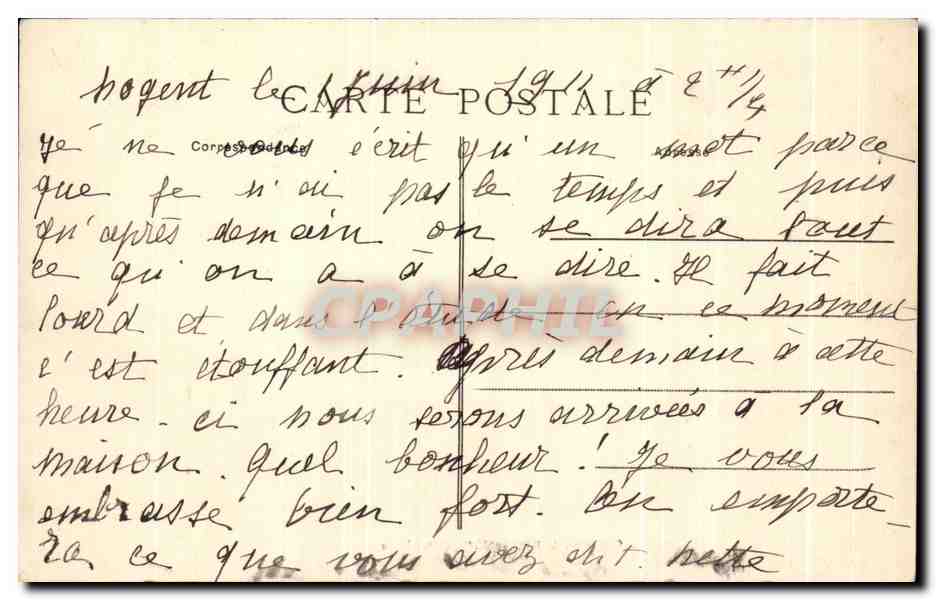 Nogent le 1 Juin 1911 à 2 H 1/4
CARTE POSTALE
Correspondance
Adresse
Je ne vous écrit qu'un mot parce
que je n'ai pas le temps et puis
qu'après demain on se dira tout
ce qu'on a à se dire. Il fait
lourd et dans l'étude en ce moment
c'est étouffant. Après demain à cette
heure-ci nous serons arrivées à la
maison. quel bonheur! Je vous
embrasse bien fort. On emporte-
ra ce que vous avez dit.
CPAPHIL